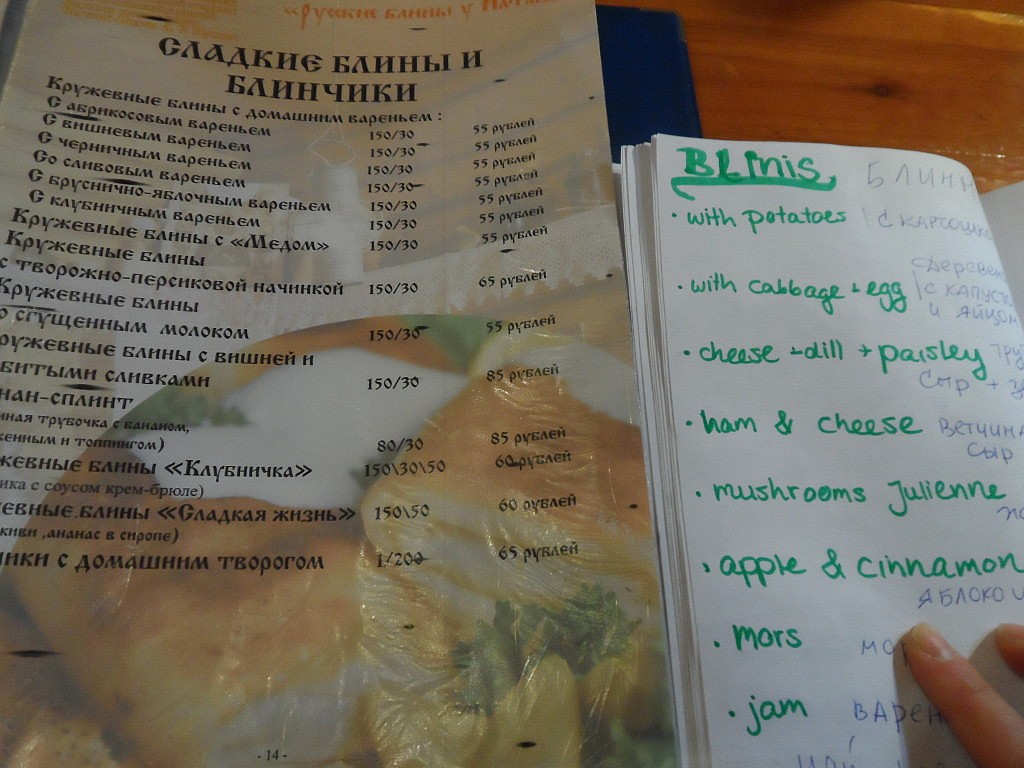 «русские блины у
СЛАДКИЕ БЛИНЫ И
БЛИНЧИКИ
Кружевные блины с домашним вареньем :
С абрикосовым вареньем 150/30 55 рублей
С вишневым вареньем 150/30 55 рублей
С черничным вареньем 150/30 55 рублей
Со сливовым вареньем 150/30 55 рублей
С бруснично-яблочным вареньем 150/30 55 рублей
С клубничным вареньем 150/30 55 рублей
Кружевные блины с «Медом» 150/30 55 рублей
Кружевные блины
с творожно-персиковой начинкой 150/30 65 рублей
Кружевные блины
о сгущенным молоком 150/30 55 рублей
ружевные блины с вишней и
битыми сливками 150/30 85 рублей
нан-сплинт
ная трубочка с бананом,
женным и топпингом) 80/30 85 рублей
жевные блины «Клубничка» 150\30\50 60 рублей
ика с соусом крем-брюле)
евные блины «Сладкая жизнь» 150\50 60 рублей
киви ,ананас в сиропе)
ники с домашним творогом 1/200 65 рублей
- 14 -
BLiNis БЛИН
• with potatoes | С КАРТОШК
Деревен
• with cabbage + egg | С КАПУСТ
И ЯЙЦОМ
• cheese + dill + parsley
СЫР +
• ham & cheese ВЕТЧИНА
СЫР
• mushrooms Julienne
• apple & cinnamon
ЯБЛОКО И
• mors МО
• jam ВАРЕН